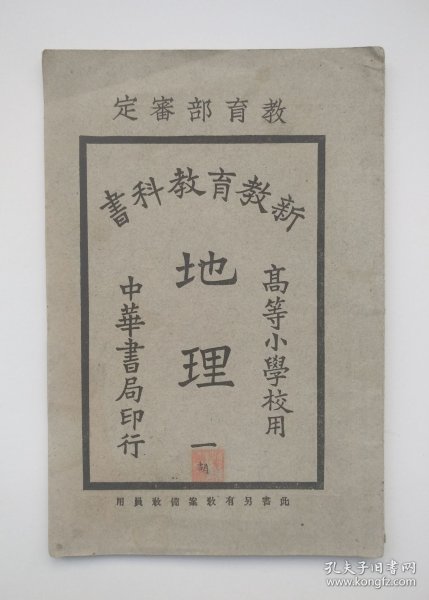 教育部審定
新教育教科書
高等小學校用
地理
一
中華書局印行
此書另有教案備教員用
孔夫子旧书网
www.kongfz.com